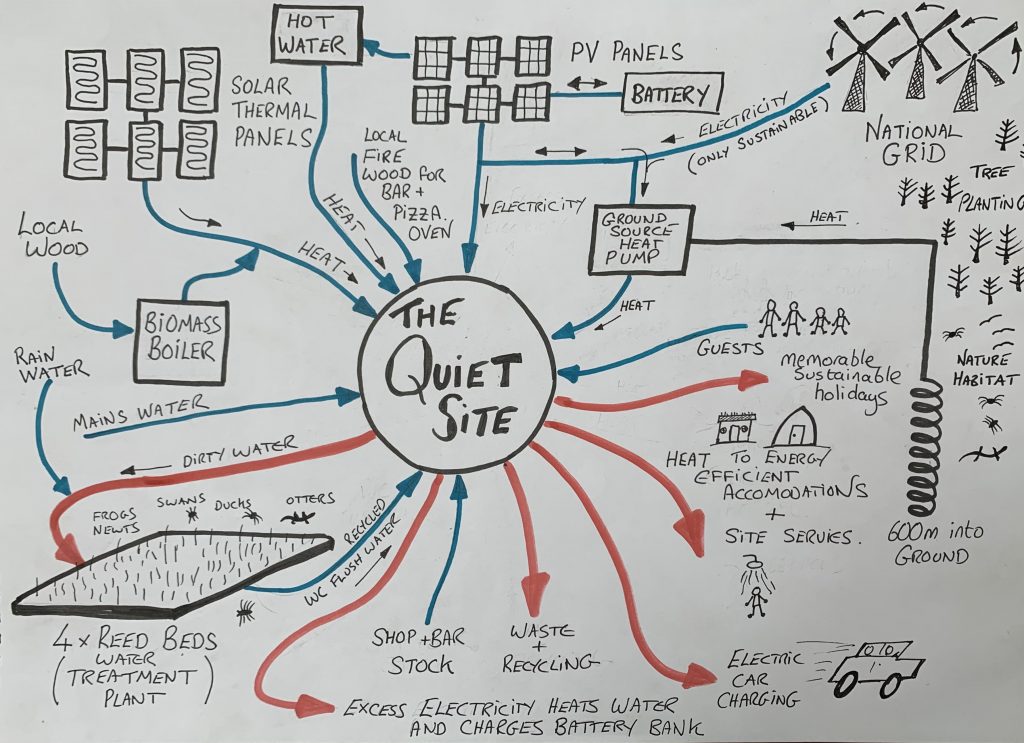 HOT
WATER
PV PANELS
BATTERY
SOLAR
THERMAL
PANELS
ELECTRICITY
(ONLY SUSTAINABLE)
NATIONAL
GRID
LOCAL
FIRE
WOOD FOR
BAR +
PIZZA.
OVEN
TREE
PLANTING
ELECTRICITY
GROUND
SOURCE
HEAT
PUMP
HEAT
LOCAL
WOOD
HEAT
HEAT
BIOMASS
BOILER
HEAT
THE
QUIET
SITE
GUESTS
RAIN
WATER
MAINS WATER
memorable
Sustainable
holidays
NATURE
HABITAT
DIRTY WATER
HEAT TO ENERGY
EFFICIENT
ACCOMODATIONS
+
SITE SERVIES.
600m INTO
GROUND
FROGS
NEWTS
SWANS
DUCKS
OTTERS
RECYCLED
WC FLUSH WATER
4 x REED BEDS
(WATER
TREATMENT
PLANT)
SHOP + BAR
STOCK
WASTE
+
RECYCLING
ELECTRIC
CAR
CHARGING
EXCESS ELECTRICITY HEATS WATER
AND CHARGES BATTERY BANK